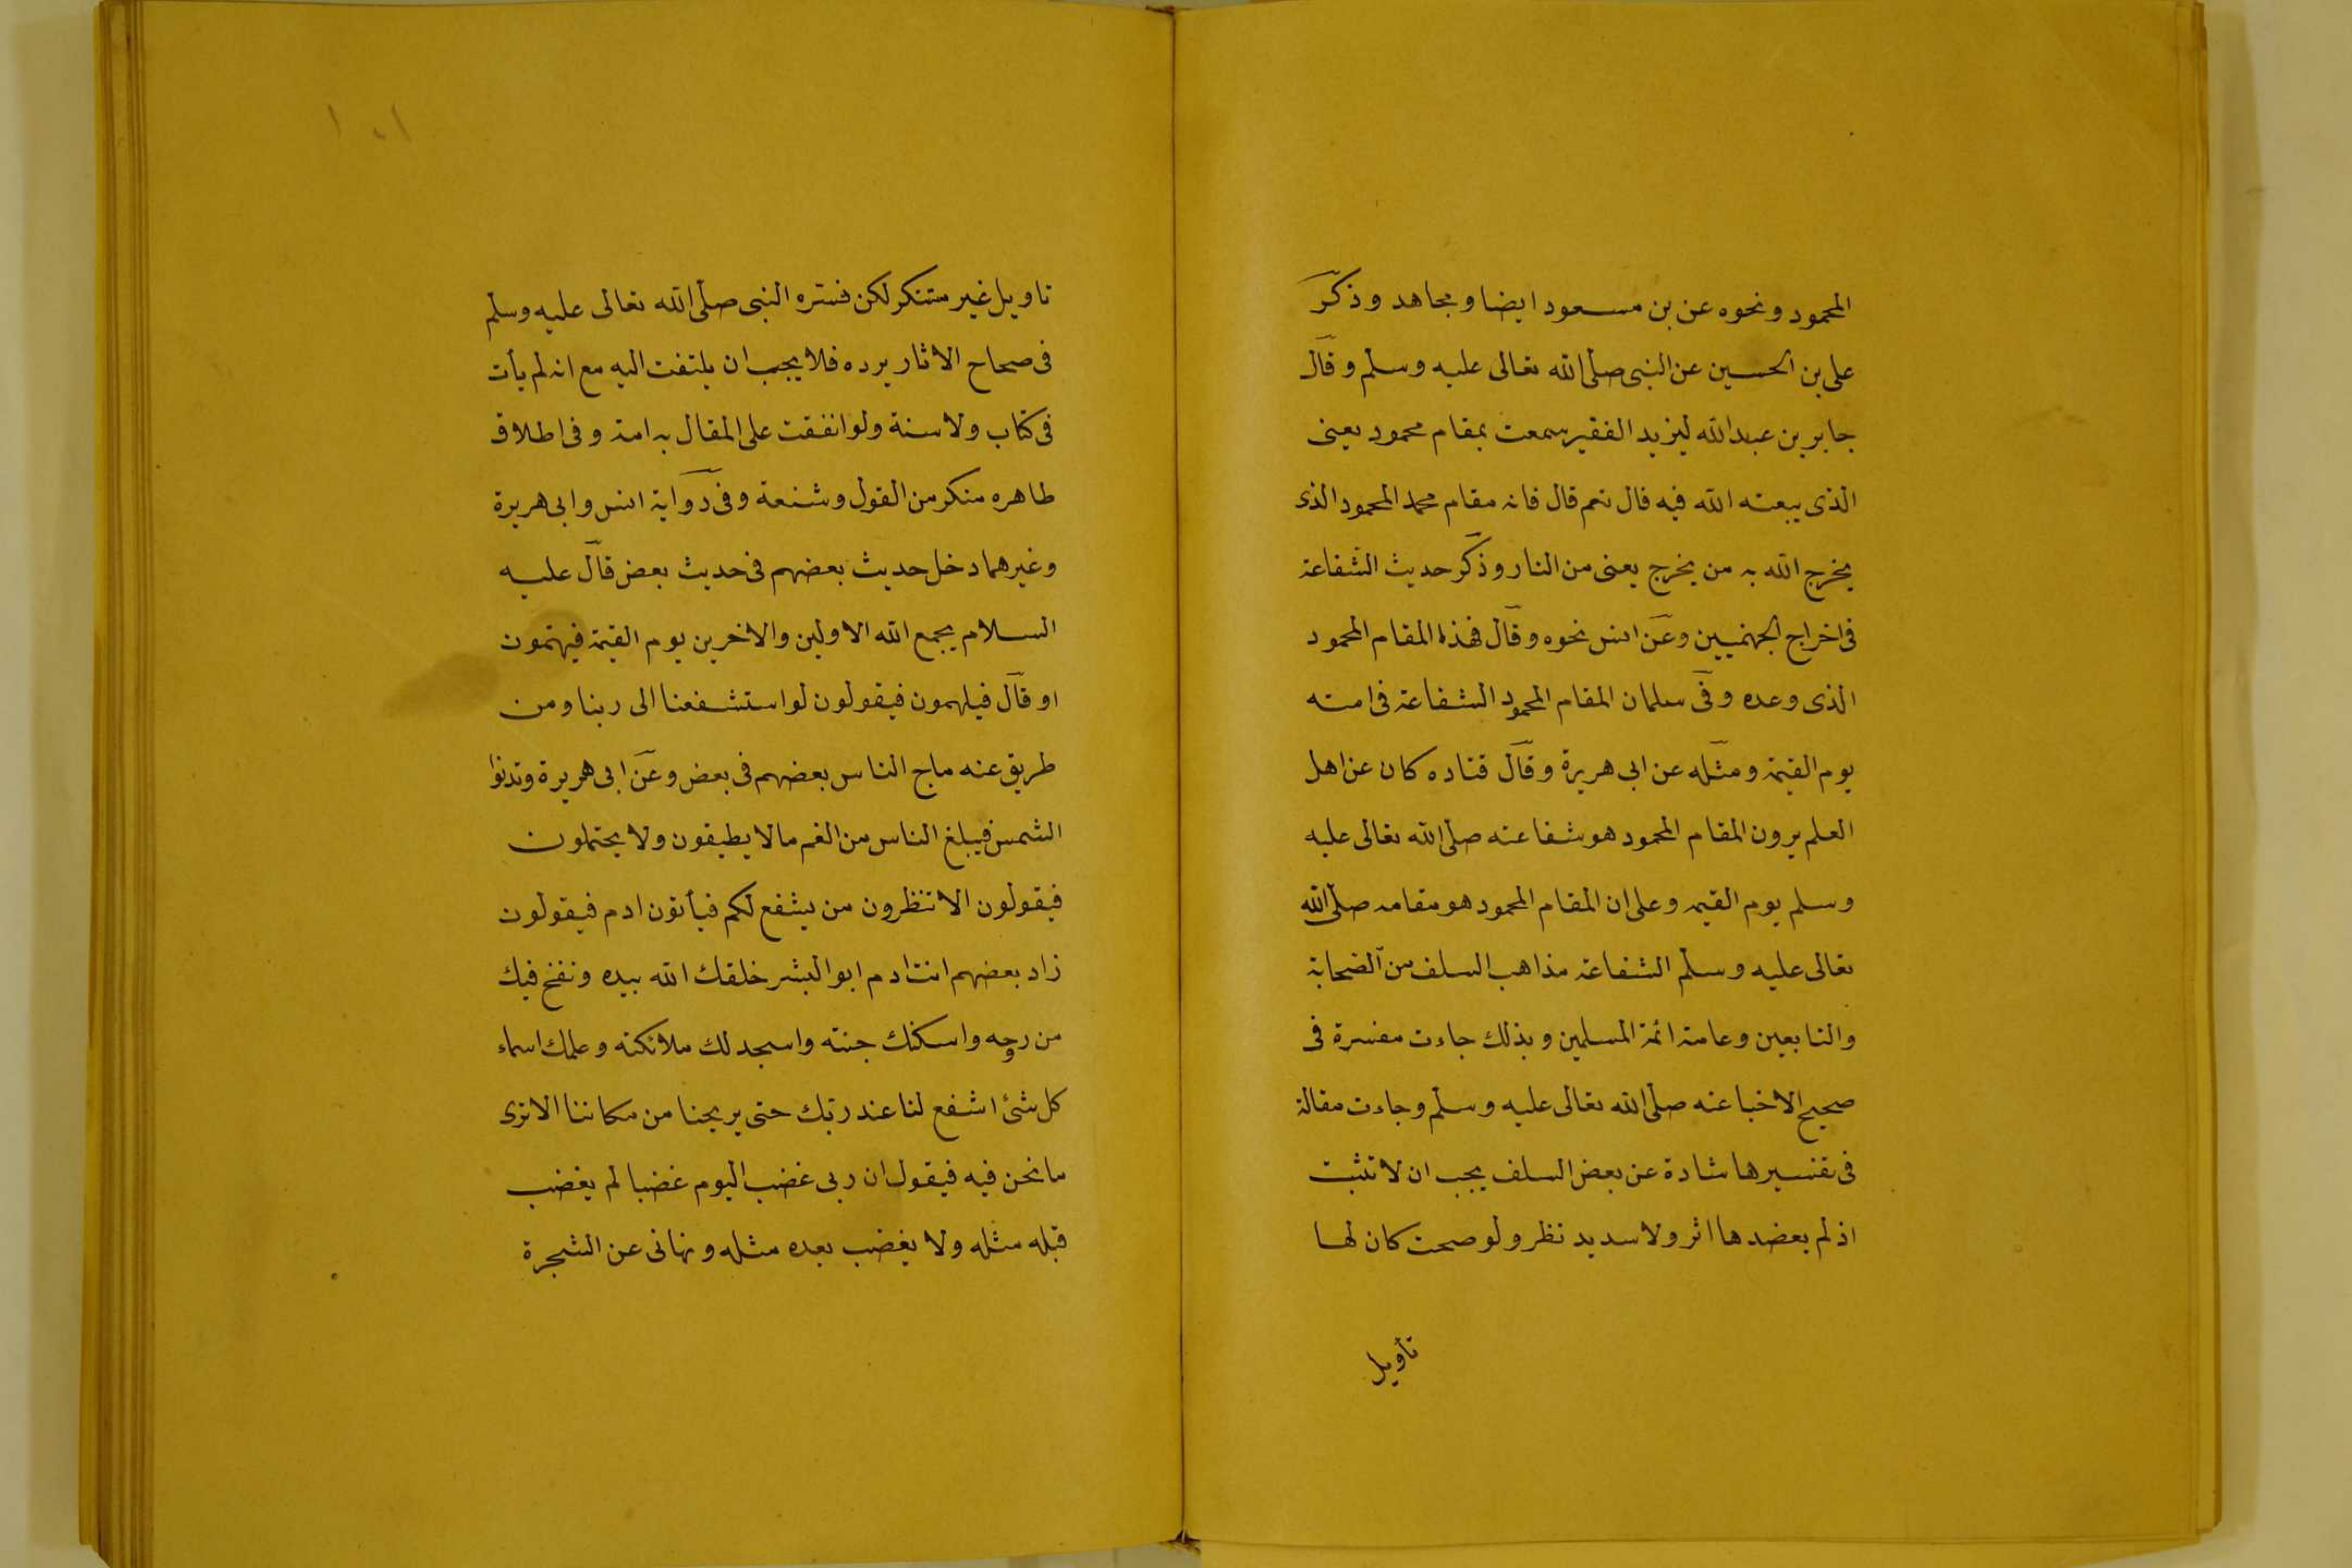 المحمود ونحوه عن بن مسعود ايضا ومجاهد وذكر
على بن الحسين عن النبى صلى الله تعالى عليه وسلم وقال
جابر بن عبد الله ليزيد الفقير سمعت بمقام محمود يعنى
الذى يبعثه الله فيه قال نعم قال فانه مقام محمد المحمود الذى
يخرج الله به من يخرج يعنى من النار وذكر حديث الشفاعة
فى اخراج الجهنميين وعن انس نحوه وقال فهذا المقام المحمود
الذى وعده وفى سلمان المقام المحمود الشفاعة فى امته
يوم القيمة ومثله عن ابى هريرة وقال قتاده كان عن اهل
العلم يرون المقام المحمود هو شفاعته صلى الله تعالى عليه
وسلم يوم القيمه وعلى ان المقام المحمود هو مقامه صلى الله
تعالى عليه وسلم الشفاعة مذاهب السلف من الصحابة
والتابعين وعامة ائمة المسلمين وبذلك جاءت مفسرة فى
صحيح الاخبا عنه صلى الله تعالى عليه وسلم وجاءت مقالة
فى تفسيرها شادة عن بعض السلف يجب ان لا تثبت
اذ لم يعضدها اثر ولا سديد نظر ولو صحت كان لها
تأويل
١٠١
تاويل غير مستنكر لكن فسره النبى صلى الله تعالى عليه وسلم
فى صحاح الاثار يرده فلا يجب ان يلتفت اليه مع انه لم يأت
فى كتاب ولا سنة ولو اتفقت على المقال به امة وفى اطلاق
طاهره منكر من القول وشنعة وفى رواية انس وابى هريرة
وغيرهما دخل حديث بعضهم فى حديث بعض قال عليه
السلام يجمع الله الاولين والاخرين يوم القيمة فيهتمون
او قال فيلهمون فيقولون لو استشفعنا الى ربنا ومن
طريق عنه ماج الناس بعضهم فى بعض وعن ابى هريرة وتدنوا
الشمس فيبلغ الناس من الغم ما لا يطيقون ولا يحتملون
فيقولون الا تنظرون من يشفع لكم فيأتون ادم فيقولون
زاد بعضهم انت ادم ابو البشر خلقك الله بيده ونفخ فيك
من روحه واسكنك جنته واسجد لك ملائكته وعلمك اسماء
كل شئ اشفع لنا عند ربك حتى يريحنا من مكاننا الا ترى
ما نحن فيه فيقول ان ربى غضب اليوم غضبا لم يغضب
قبله مثله ولا يغضب بعده مثله ونهانى عن الشجرة